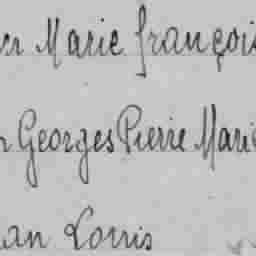 Marie françois
Georges Pierre Marie
an Louis